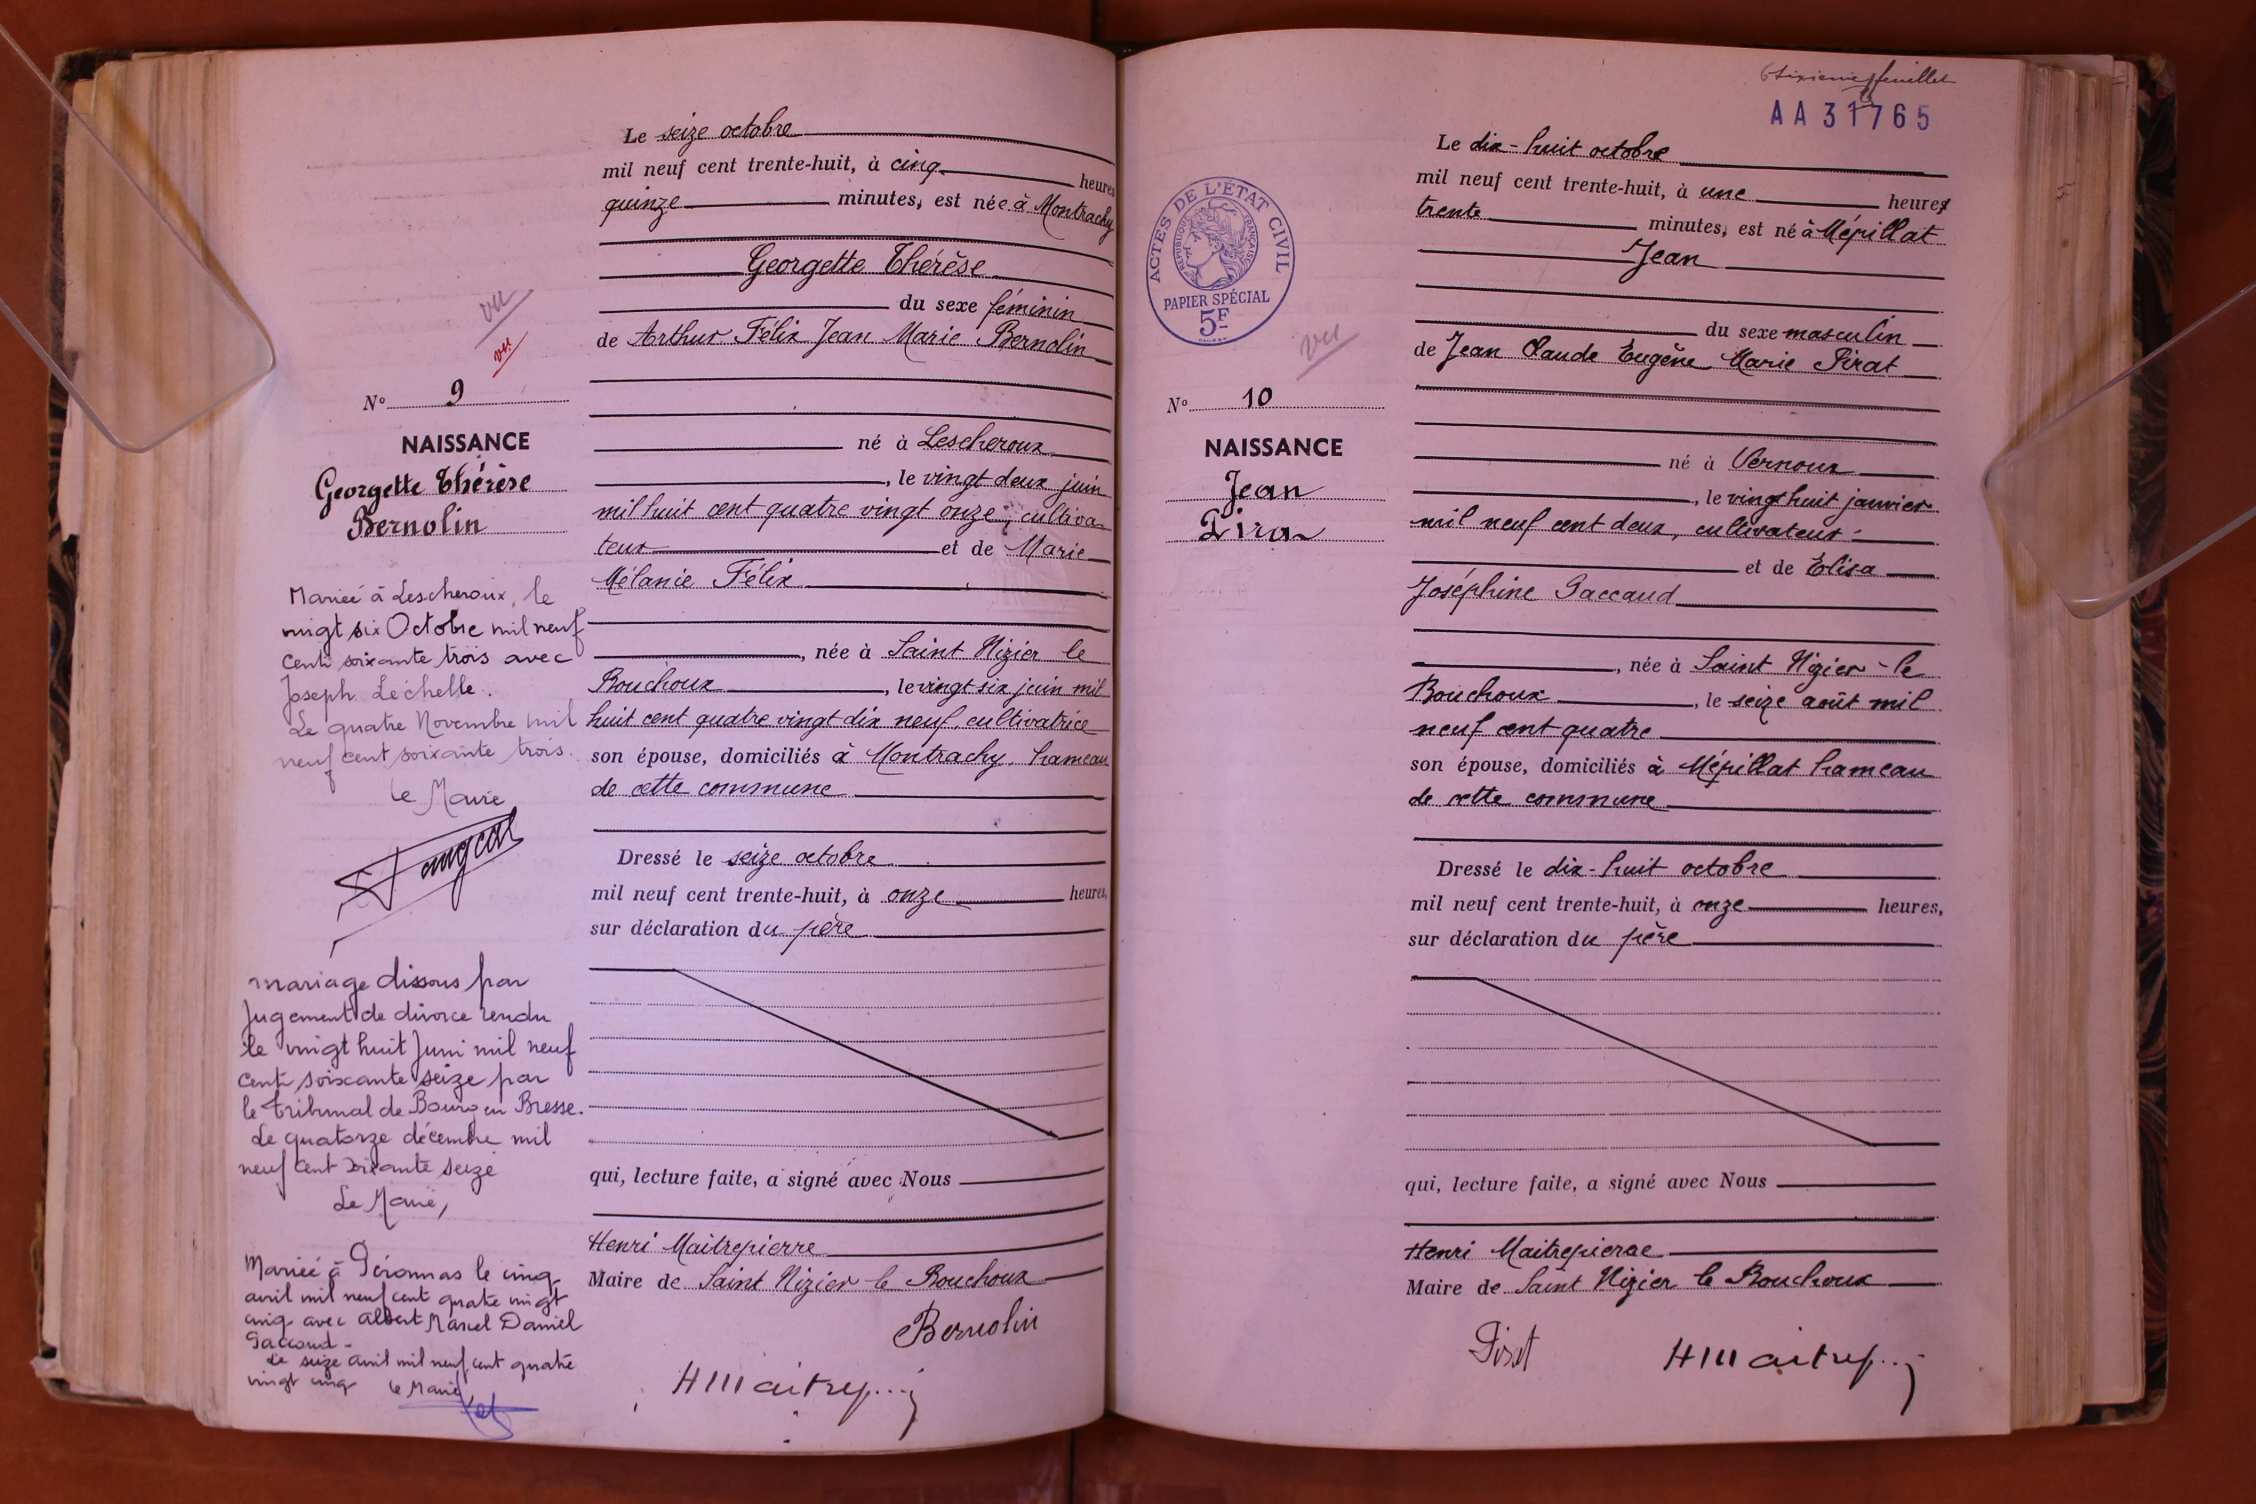 Le seize octobre
mil neuf cent trente-huit, à cinq heures
quinze minutes, est née à Montrachy
Georgette Thérèse
du sexe féminin
de Arthur Félix Jean Marie Bernolin
né à Lescheroux
, le vingt deux juin
mil huit cent quatre vingt onze, cultiva-
teur et de Marie
Mélanie Félix
, née à Saint Nizier le
Bouchoux, le vingt six juin mil
huit cent quatre vingt dix neuf, cultivatrice
son épouse, domiciliés à Montrachy, hameau
de cette commune
Dressé le seize octobre
mil neuf cent trente-huit, à onze heures,
sur déclaration du père
qui, lecture faite, a signé avec Nous
Henri Maitrepierre
Maire de Saint Nizier le Bouchoux
Bernolin
HMaitrep
vu
vu
N° 9
NAISSANCE
Georgette Thérèse
Bernolin
Mariée à Lescheroux, le
vingt six Octobre mil neuf
cent soixante trois avec
Joseph Léchelle.
Le quatre Novembre mil
neuf cent soixante trois.
Le Maire
mariage dissous par
Jugement de divorce rendu
le vingt huit Juin mil neuf
cent soixante seize par
le Tribunal de Bourg en Bresse.
Le quatorze décembre mil
neuf cent soixante seize
Le Maire,
Mariée à Péronnas le cinq
avril mil neuf cent quatre vingt
cinq avec Albert Marcel Daniel
Gaccaud -
Le seize avril mil neuf cent quatre
vingt cinq Le Maire
sixième feuillet
AA 31765
ACTES DE L'ÉTAT CIVIL
RÉPUBLIQUE FRANÇAISE
PAPIER SPÉCIAL
5F
vu
N° 10
NAISSANCE
Jean
Pirat
Le dix-huit octobre
mil neuf cent trente-huit, à une heures
trente minutes, est né à Mépillat
Jean
du sexe masculin
de Jean Claude Eugène Marie Pirat
né à Vernoux
, le vingt huit janvier
mil neuf cent deux, cultivateur
et de Elisa
Joséphine Gaccaud
, née à Saint Nizier-le
Bouchoux, le seize août mil
neuf cent quatre
son épouse, domiciliés à Mépillat hameau
de cette commune
Dressé le dix-huit octobre
mil neuf cent trente-huit, à onze heures,
sur déclaration du père
qui, lecture faite, a signé avec Nous
Henri Maitrepierre
Maire de Saint Nizier le Bouchoux
Pirat
HMaitrep